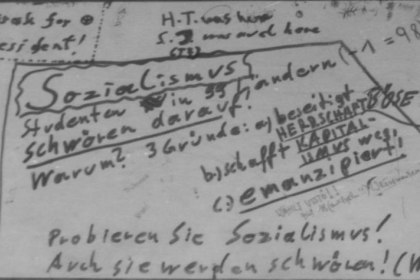 for
esident!
H.T. was here
S. was avel here
Sozialismus
Studenten in 99 Ländern
schwören darauf!
Warum? 3 Gründe: a) beseitigt
HERRSCHAFT BÖSE
b) schafft KAPITAL-
ISMUS weg,
c.) emanzipiert!
Probieren Sie Sozialismus!
Auch sie werden schwören!